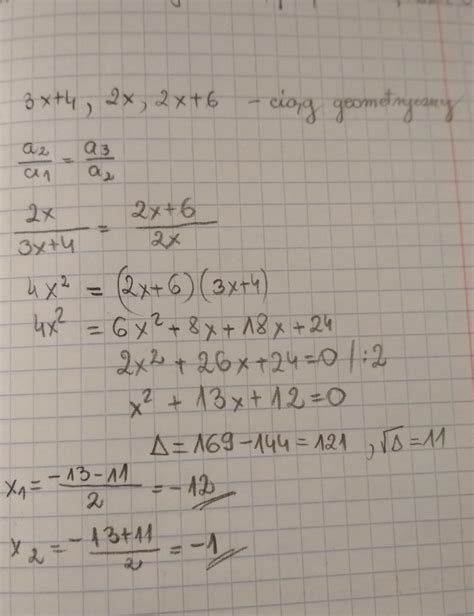 3x+4, 2x, 2x+6 - ciąg geometryczny
a2/a1 = a3/a2
2x/3x+4 = 2x+6/2x
4x² = (2x+6)(3x+4)
4x² = 6x²+8x+18x+24
2x² + 26x+24=0 /:2
x² + 13x+12=0
Δ=169-144=121, √Δ=11
x1= -13-11/2 = -12
x2= -13+11/2 = -1